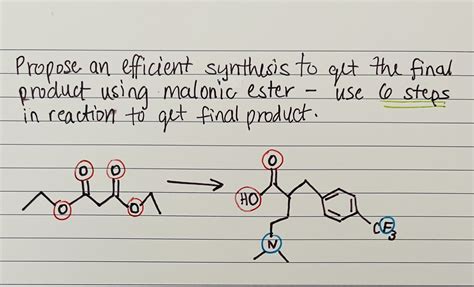 Propose an efficient synthesis to get the final
product using malonic ester - use 6 steps
in reaction to get final product.
O O O
O O HO
N CF3